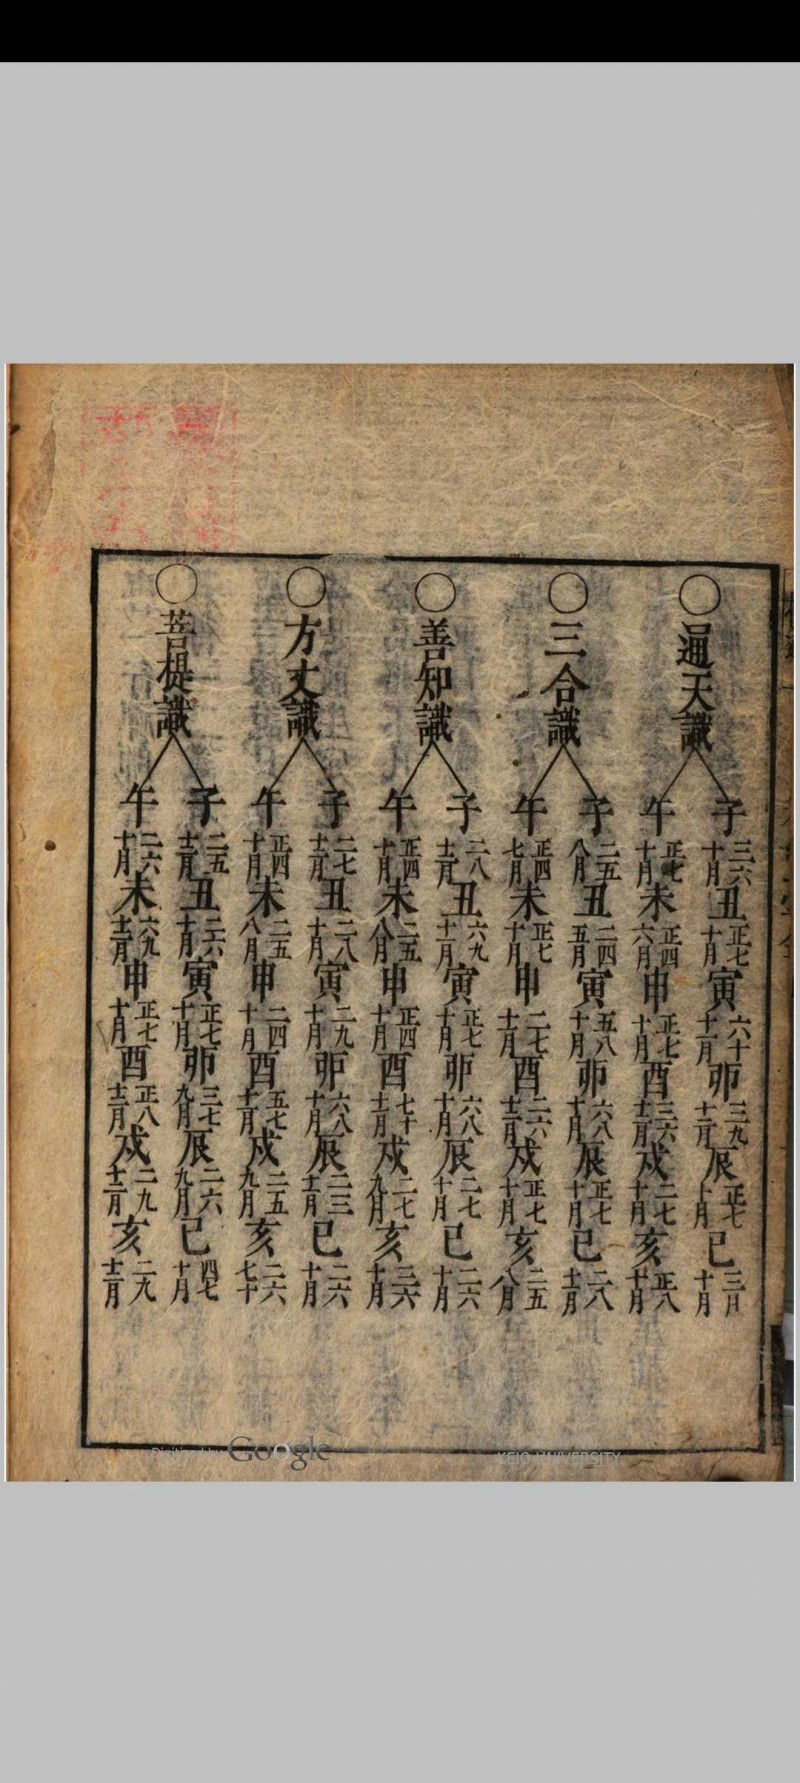 ○通天識
子 三六十月 丑 正七十月 寅 六十十一月 卯 三九十二月 辰 正七十月 巳 三十月
午 正七十月 未 正四六月 申 正七十月 酉 三六十二月 戌 二七十月 亥 正八十月
○三合識
子 二五八月 丑 二四五月 寅 五八十月 卯 六八十月 辰 正七十月 巳 二八十二月
午 正四七月 未 正七十月 申 二七十一月 酉 二六十二月 戌 正七十月 亥 二五八月
○善知識
子 二八十二月 丑 六九十一月 寅 正七十月 卯 六八十月 辰 二七十月 巳 二六十月
午 正四十月 未 二五八月 申 正四十月 酉 七十十二月 戌 二七九月 亥 三六十月
○方丈識
子 二七十二月 丑 二八十月 寅 二九十月 卯 六八十月 辰 二三十二月 巳 二六十月
午 正四十月 未 二五八月 申 二四十月 酉 五七十一月 戌 二五九月 亥 二六七十
○菩提識
子 二五十二月 丑 二六十月 寅 正七十月 卯 三七九月 辰 二六九月 巳 四七十月
午 二六十月 未 六九十二月 申 正七十月 酉 正八十二月 戌 二九十二月 亥 二九十二月
Digitized by Google
KEIO UNIVERSITY